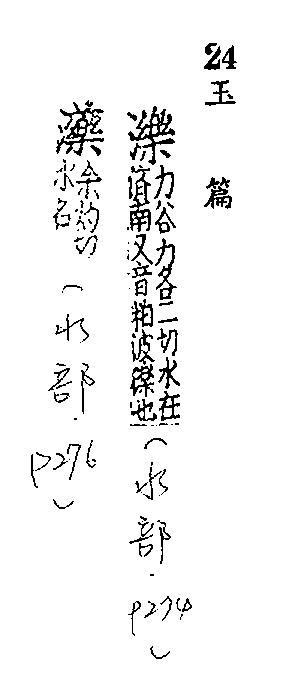 24
玉篇
濼
力谷力各二切水在
濟南又音粕波濼也
(水部.P274)
余灼切
水名
(水部.P276)